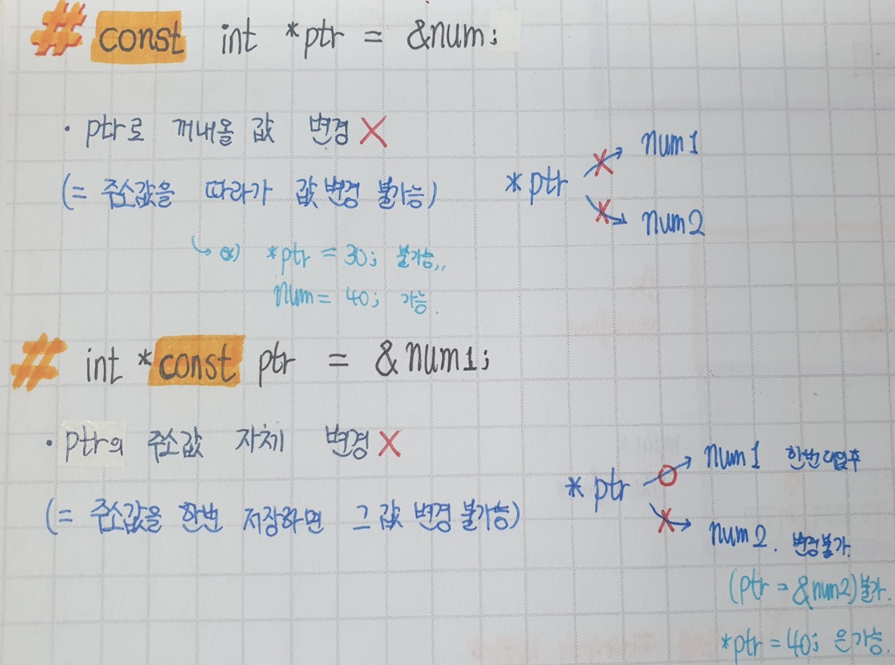 # const int *ptr = &num;
· ptr로 꺼내올 값 변경 X
(= 주소값을 따라가 값 변경 불가능)
*ptr
num1
num2
ex) *ptr = 30; 불가능,,
num = 40; 가능.
# int *const ptr = &num1;
· ptr의 주소값 자체 변경 X
(= 주소값을 한번 저장하면 그 값 변경 불가능)
*ptr
num1 한번 대입후
num2. 변경불가.
(ptr = &num2)불가.
*ptr = 40; 은가능.